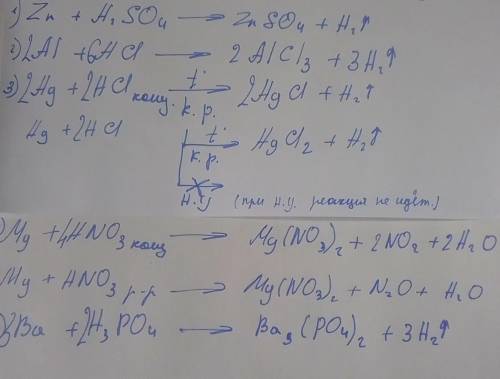 1) Zn + H₂SO₄ → ZnSO₄ + H₂↑
2) 2Al + 6HCl → 2AlCl₃ + 3H₂↑
3) 2Hg + 2HCl конц. t° к.р. → 2HgCl + H₂↑
Hg + 2HCl t° к.р. → HgCl₂ + H₂↑
н.у (при н.у. реакция не идёт.)
) Mg + 4HNO₃ конц → Mg(NO₃)₂ + 2NO₂ + 2H₂O
Mg + HNO₃ р-р → Mg(NO₃)₂ + N₂O + H₂O
) 3Ba + 2H₃PO₄ → Ba₃(PO₄)₂ + 3H₂↑